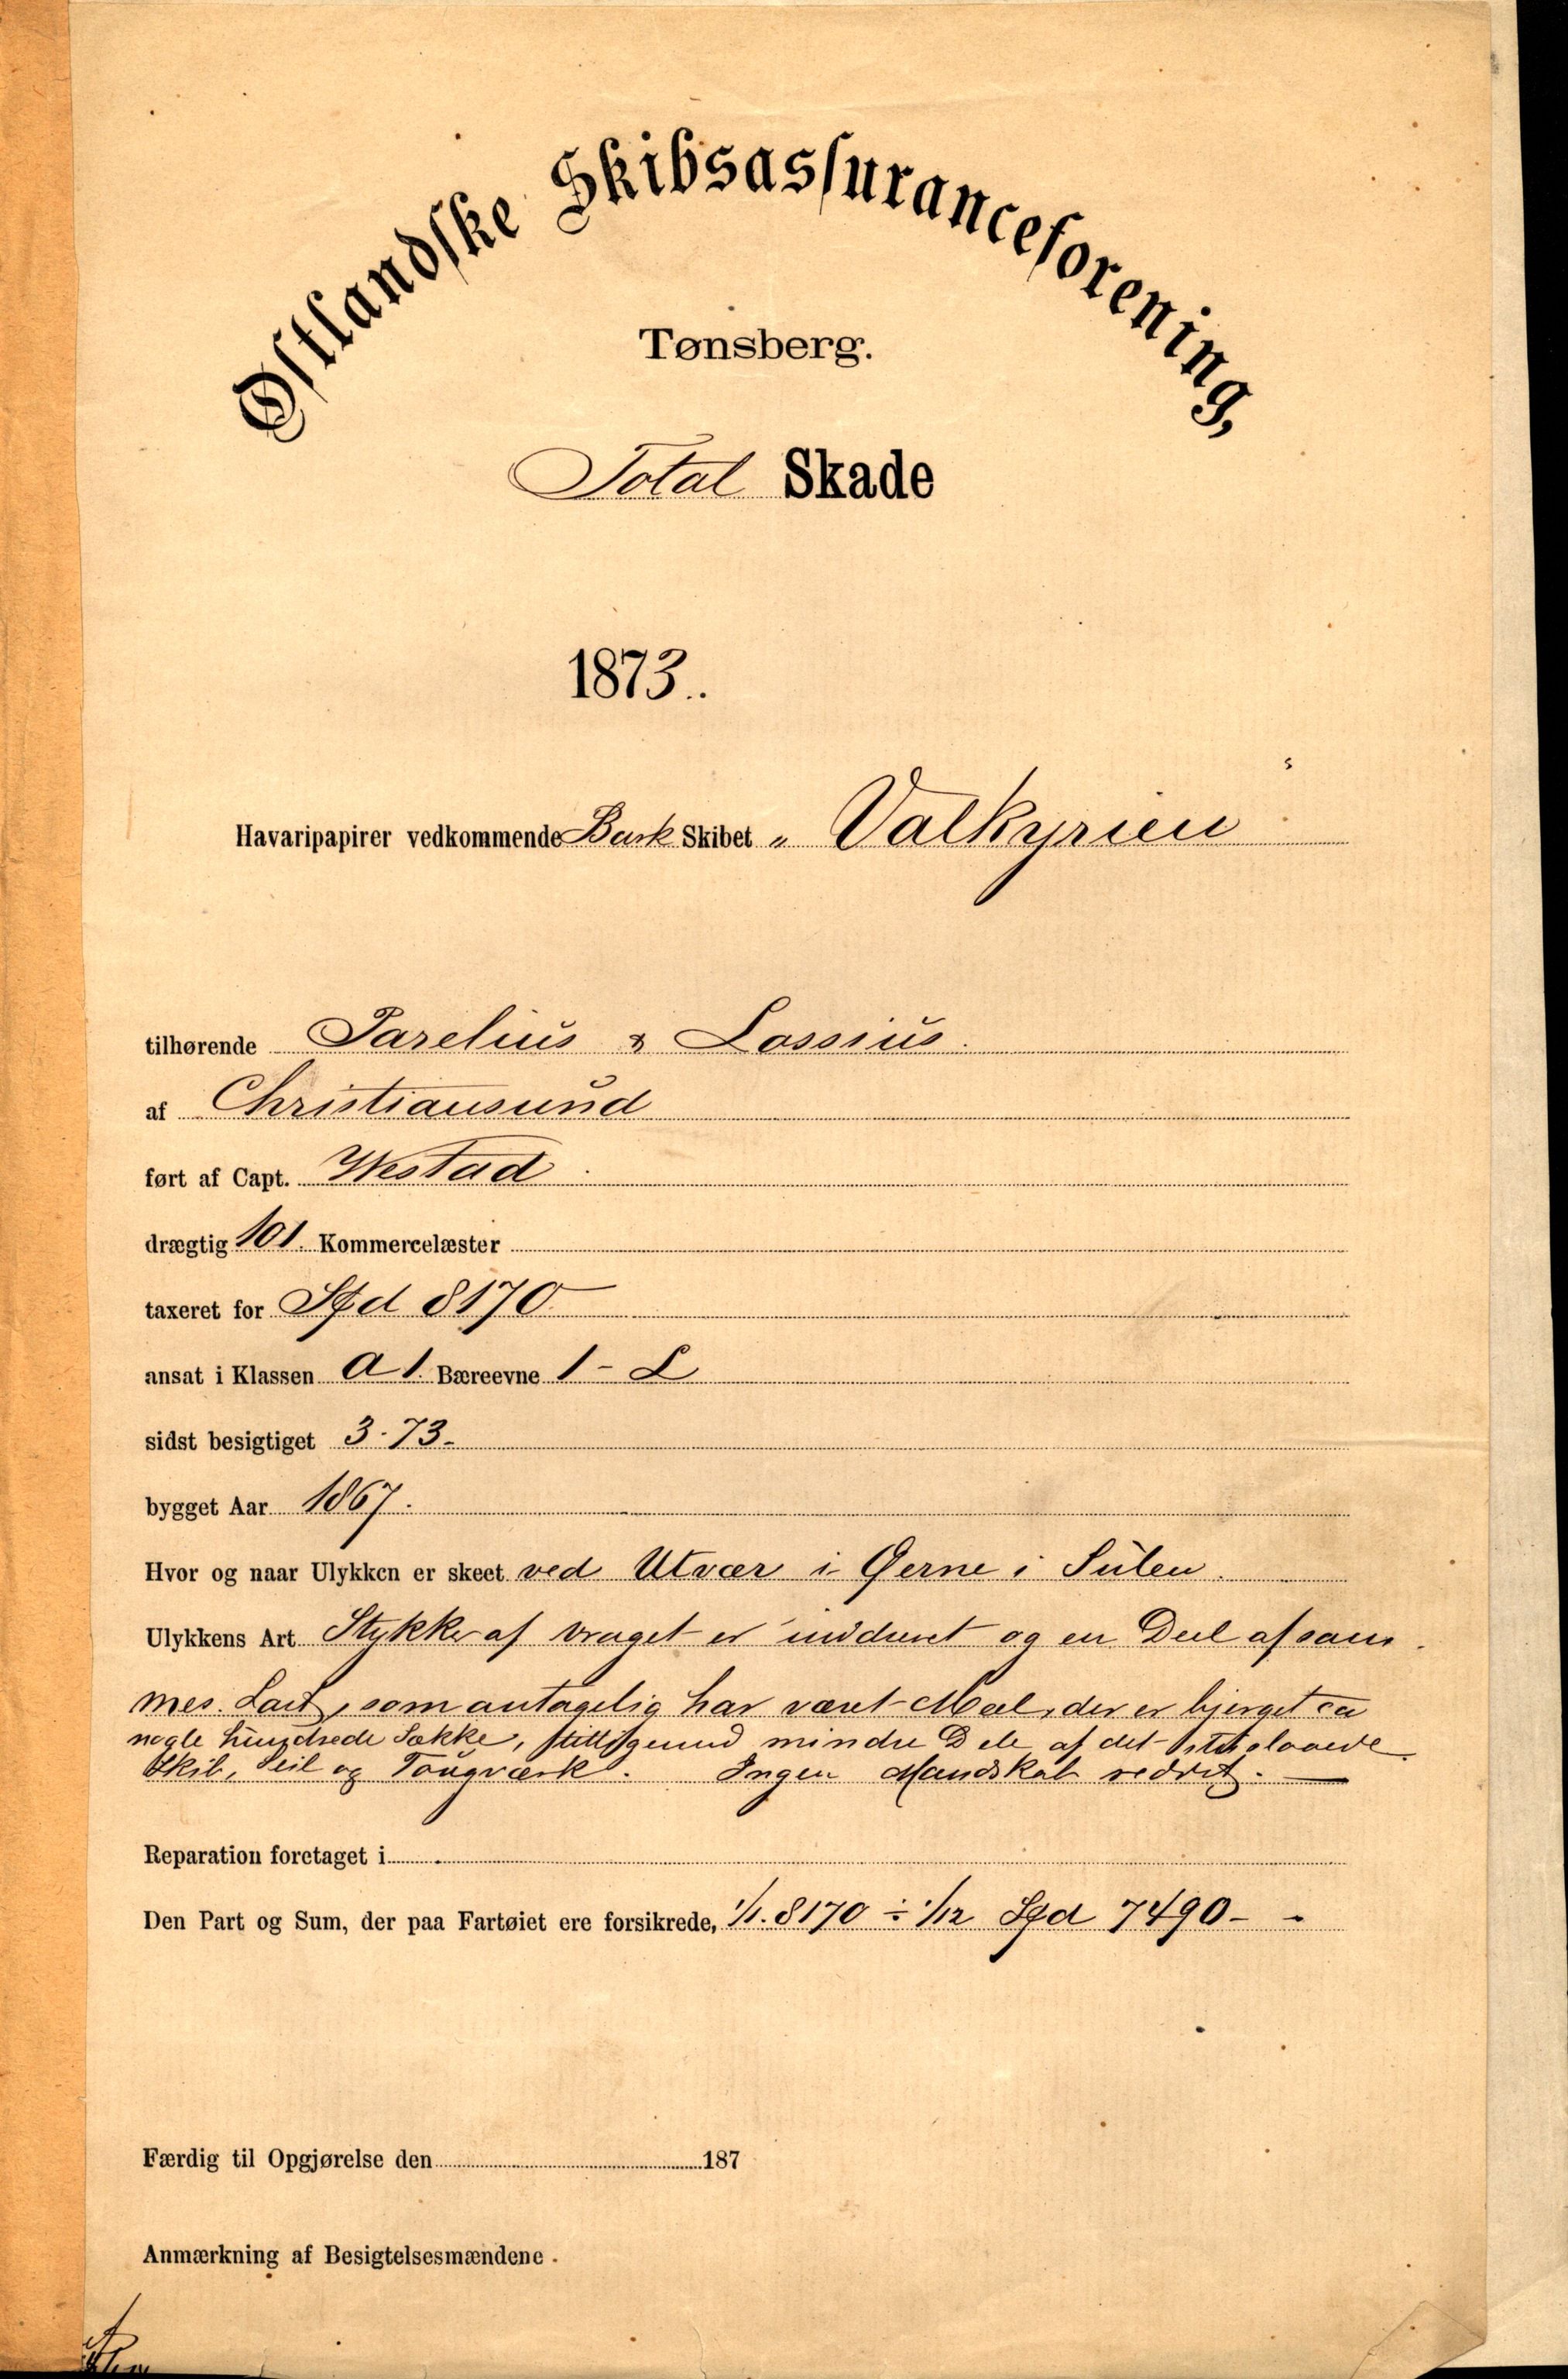 Østlandske Skibsassuranceforening,
Tønsberg.
Total Skade
1873.
Havaripapirer vedkommende Bark Skibet „Valkyrien"
tilhørende Parelius & Lossius.
af Christiansund
ført af Capt. Westad.
drægtig 101. Kommercelæster
taxeret for Spd 8170
ansat i Klassen A1. Bæreevne 1 - L
sidst besigtiget 3-73-
bygget Aar 1867.
Hvor og naar Ulykken er skeet ved Utvær i Øerne i Sulen.
Ulykkens Art Stykker af vraget er inddrevet og en Deel af sam-
mes Last, som antagelig har været Meel, der er bjerget ca
nogle hundrede Sække, mindre Dele af det
Skib, Seil og Tougværk. Ingen Mandskab reddet.
Reparation foretaget i
Den Part og Sum, der paa Fartøiet ere forsikrede, 1/1. 8170 ÷ 1/12 Spd 7490 -
Færdig til Opgjørelse den 187
Anmærkning af Besigtelsesmændene.